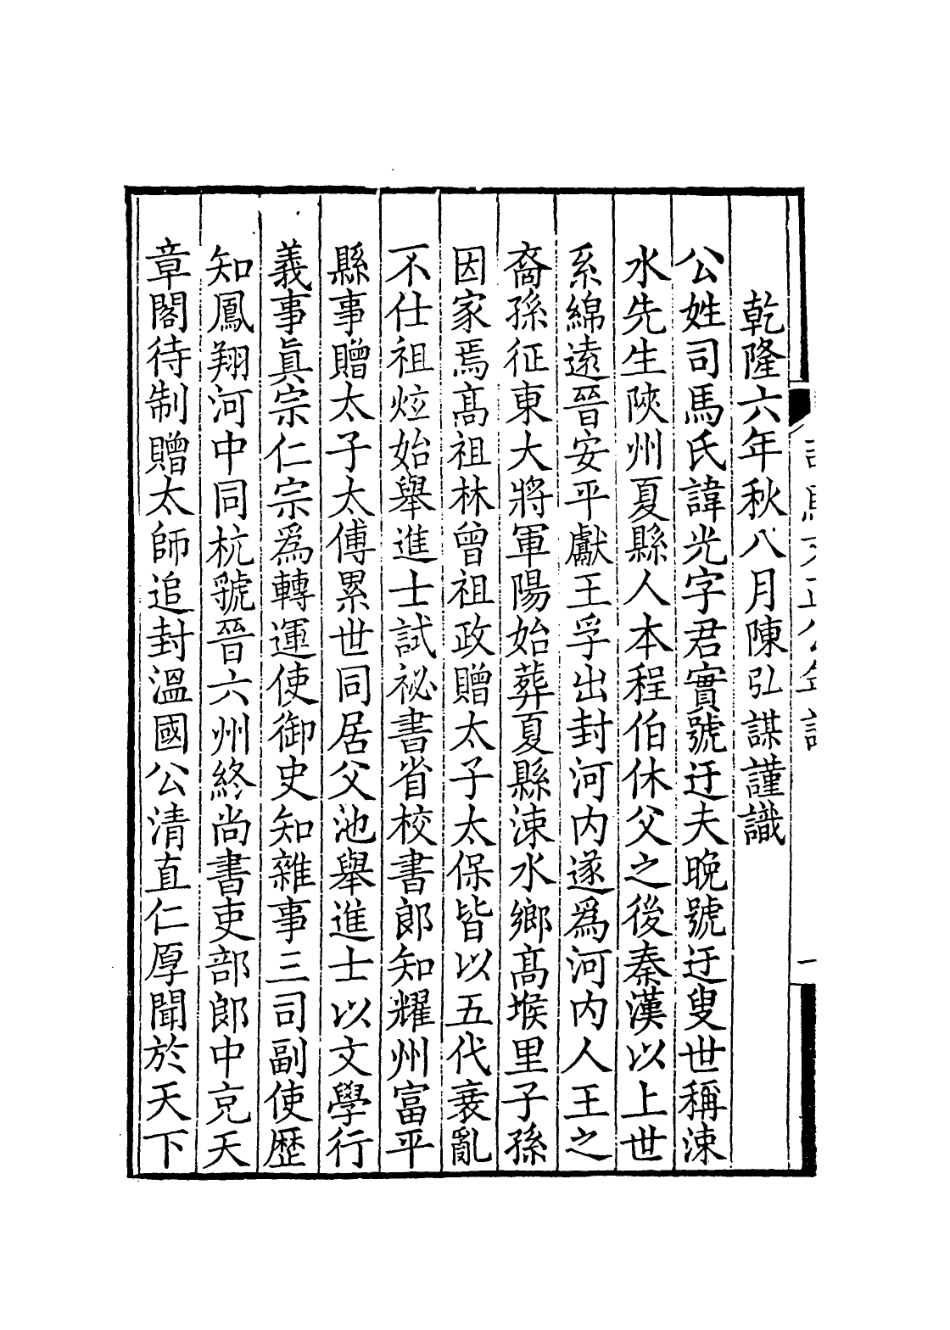 乾隆六年秋八月陳弘謀謹識
公姓司馬氏諱光字君實號迂夫晚號迂叟世稱涑
水先生陝州夏縣人本程伯休父之後秦漢以上世
系綿遠晉安平獻王孚出封河內遂爲河內人王之
裔孫征東大將軍陽始葬夏縣涑水鄉髙堠里子孫
因家焉髙祖林曾祖政贈太子太保皆以五代衰亂
不仕祖炫始舉進士試祕書省校書郎知耀州富平
縣事贈太子太傅累世同居父池舉進士以文學行
義事眞宗仁宗爲轉運使御史知雜事三司副使歷
知鳳翔河中同杭虢晉六州終尚書吏部郎中充天
章閣待制贈太師追封溫國公清直仁厚聞於天下